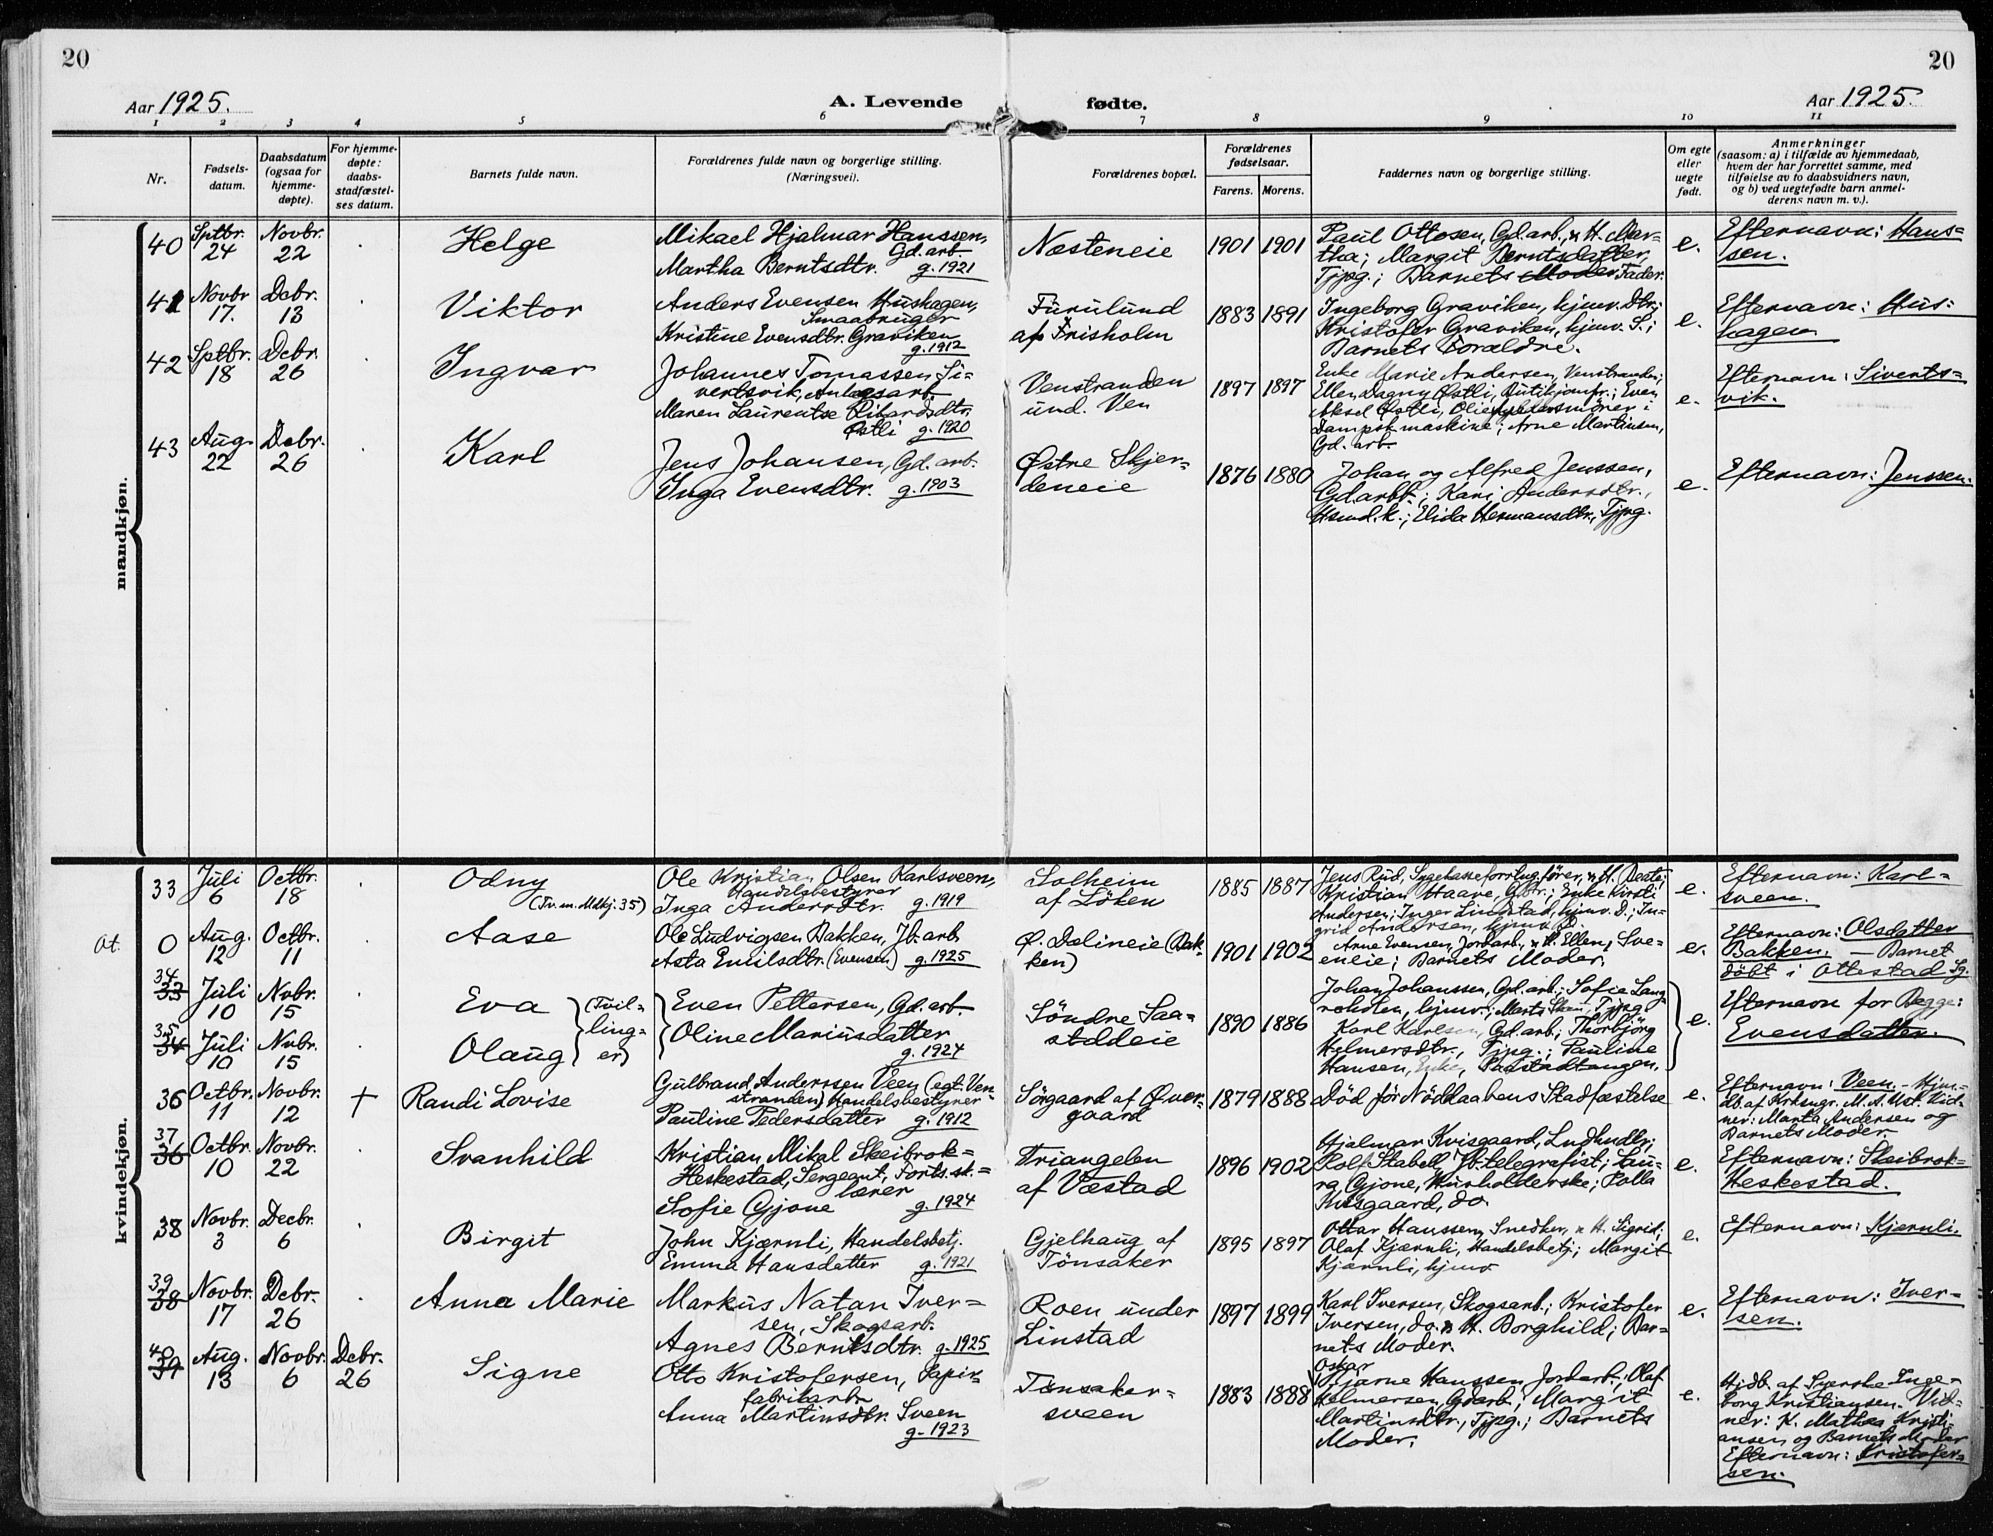 20
20
Aar 1925.
A. Levende
fødte.
Aar 1925.
1 2 3 4 5 6 7 8 9 10 11
Nr.
Fødsels-
datum.
Daabsdatum
(ogsaa for
hjemme-
døpte).
For hjemme-
døpte:
daabs-
stadfæstel-
ses datum.
Barnets fulde navn.
Forældrenes fulde navn og borgerlige stilling.
(Næringsvei).
Forældrenes bopæl.
Forældrenes
fødselsaar.
Farens. Morens.
Faddernes navn og borgerlige stilling.
Om egte
eller
uegte
født.
Anmerkninger
(saasom: a) i tilfælde av hjemmedaab,
hvem der har forrettet samme, med
tilføielse av to daabsvidners navn,
og b) ved uegtefødte barn anmel-
derens navn m. v.).
mandkjøn.
40
Sptbr.
24
Novbr.
22
Helge
Mikael Hjalmar Hanssen,
Gd. arb.
Martha Berntsdtr. g. 1921
Næsteneie
1901 1901
Paul Ottosen, Gd. arb., & H. Mar-
tha; Margit Berntsdatter,
Tjpg.; Barnets Moder. Fader.
e.
Efternavn: Hans-
sen.
41
Novbr
17.
Debr.
13
Viktor
Anders Evensen Hushagen,
Smaabruger
Kristine Evensdtr. Graviken
g. 1912
Furulund
af Frisholm
1883 1891
Ingeborg Graviken, hjmv. Dtr.;
Kristofer Graviken, hjmv. S.;
Barnets Forældre.
e.
Efternavn: Hus-
hagen.
42
Sptbr.
18
Debr.
26
Ingvar
Johannes Tomassen Si-
vertsvik, Anlægsarb.
Maren Laurentse Rikardsdtr.
Østli g. 1920
Venstranden
und. Ven
1897 1897
Enke Marie Andersen, Venstranden;
Ellen Dagny Østli, Butikjomfr.; Even
Aksel Østli,
Dampsk maskine; Arne Martinsen,
Gd. arb.
e.
Efternavn: Siverts-
vik.
43
Aug.
22
Debr.
26
Karl
Jens Johansen, Gd. arb.
Inga Evensdtr. g. 1903
Østre Skjer-
deneie
1876 1880
Johan og Alfred Jenssen,
Gd.arbb.; Kari Andersdtr.,
Hsmd. k.; Elida Hermansdtr., Tjpg.
e.
Efternavn: Jenssen.
kvindekjøn.
33
Juli
6
Octbr.
18
Odny
(Tv. m. Mdkj. 35)
Ole Kristian Olsen Karlsveen,
Handelsbestyrer
Inga Andersdtr. g. 1919
Solheim
af Löken
1885 1887
Jens Rud, Sygekasseforretng.fører, & H. Dorte;
Kristian Haave, Gbr.; Enke Kirsti
Andersen; Inger Linstad, hjmv. D.; In-
grid Andersen, hjmv. D.
e.
Efternavn: Karl-
sveen.
Ot.
0
Aug.
12
Octbr.
11
Aase
Ole Ludvigsen Bakken, Jb. arb
Asta Emilsdtr. (Evensen) g. 1925
Ø. Dælineie (Bak-
ken)
1901 1902
Arne Evensen, Jordarb., & H. Ellen, Sve-
eneie; Barnets Moder.
e.
Efternavn: Olsdatter
Bakken. — Barnet
döbt i Ottestad Sg.
34
33
Juli
10
Nvbr.
15
Eva
(Tvil-
ling-
er)
Even Pettersen, Gd. arb.
Oline Mariusdatter
g. 1924
Söndre Saa-
stadeie
1890 1886
Johan Johanssen, Gd. arb.; Sofie Lang-
rholen, hjmv.; Marts Skau, Tjpg
Karl Karlsen, Gd. arb.; Thorbjörg
Helmersdtr., Tjpg.; Pauline
Hansen, Enke, Padstadtangen.
e.
Efternavn for Begge:
Evensdatter.
35
34
Juli
10
Nvbr.
15
Olaug
36
Octbr.
11
Novbr.
12
+
Randi Lovise
Gulbrand Anderssen Veen (egt. Ven-
stranden) Handelsbestyrer
Pauline Pedersdatter g. 1912
Sörgaard af Øver-
gaard
1879 1888
Død før Nöddaabens Stadfæstelse
e.
Efternavn: Veen. – Hjm-
db. af Krksngr. M. A. Ust. Vid-
ner: Marta Andersen og
Barnets Moder.
37
36
Octbr.
10
Novbr.
22
Svanhild
Kristian Mikal Skeibrok-
Heskestad, Sergeant, Forts. sk.-
lærer
Sofie Gjone g. 1924
Triangelen
af Væstad
1896 1902
Hjalmar Kvisgaard, Ludhndlr;
Rolf Stabell, Jb.telegrafist; Lau-
ra Gjone, Husholderske; Polla
Kvisgaard, do.
e.
Efternavn: Skeibrok-
Heskestad.
38
Novbr.
3
Decbr.
6
Birgit
John Kjærnli, Handelsbetj.
Emma Hansdatter g. 1921
Gjelhaug af
Tönsaker
1895 1897
Ottar Hanssen, Snedker, & H. Sigrid;
Olaf Kjærnli, Handelsbetj.; Margit
Kjærnli, hjmv.
e.
Efternavn: Kjernli.
39
38
Novbr.
17
Debr.
26
Anna Marie
Markus Natan Iver-
sen, Skogsarb.
Agnes Berntsdtr. g. 1925
Roen under
Linstad
1897 1899
Karl Iversen, Skogsarb.; Kristofer
Iversen, do. & H. Borghild; Bar-
nets Moder.
e.
Efternavn: Iver-
sen.
40
39
Aug.
13
Novbr.
6
Debr.
26
Signe
Otto Kristofersen, Papir-
fabrikarb.
Anna Martinsdtr. Sveen
g. 1923
Tønsaker-
sveen
1883 1888
Oskar
Hjarne Hanssen, Jordarb.; Olaf
Helmersen, Gdarb.; Margit
Martinsdtr., Tjpg.; Barnets
Moder.
e.
Hjdb. af Svenske Inge-
borg Kristiansen. Vid-
ner: K. Mathea Kristi-
ansen og Barnets Moder
Efternavn: Kristofer-
sen.